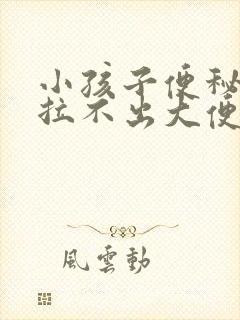 小孩子便秘
拉不出大便
風雲動